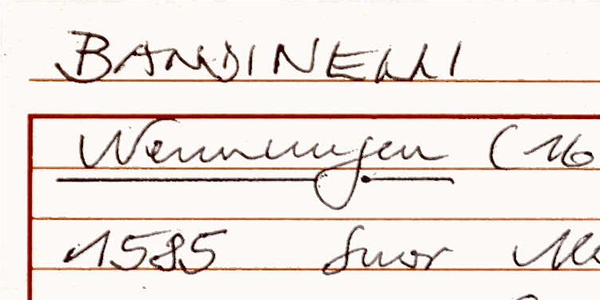 BANDINELLI
Nennungen (16
1585 Suor